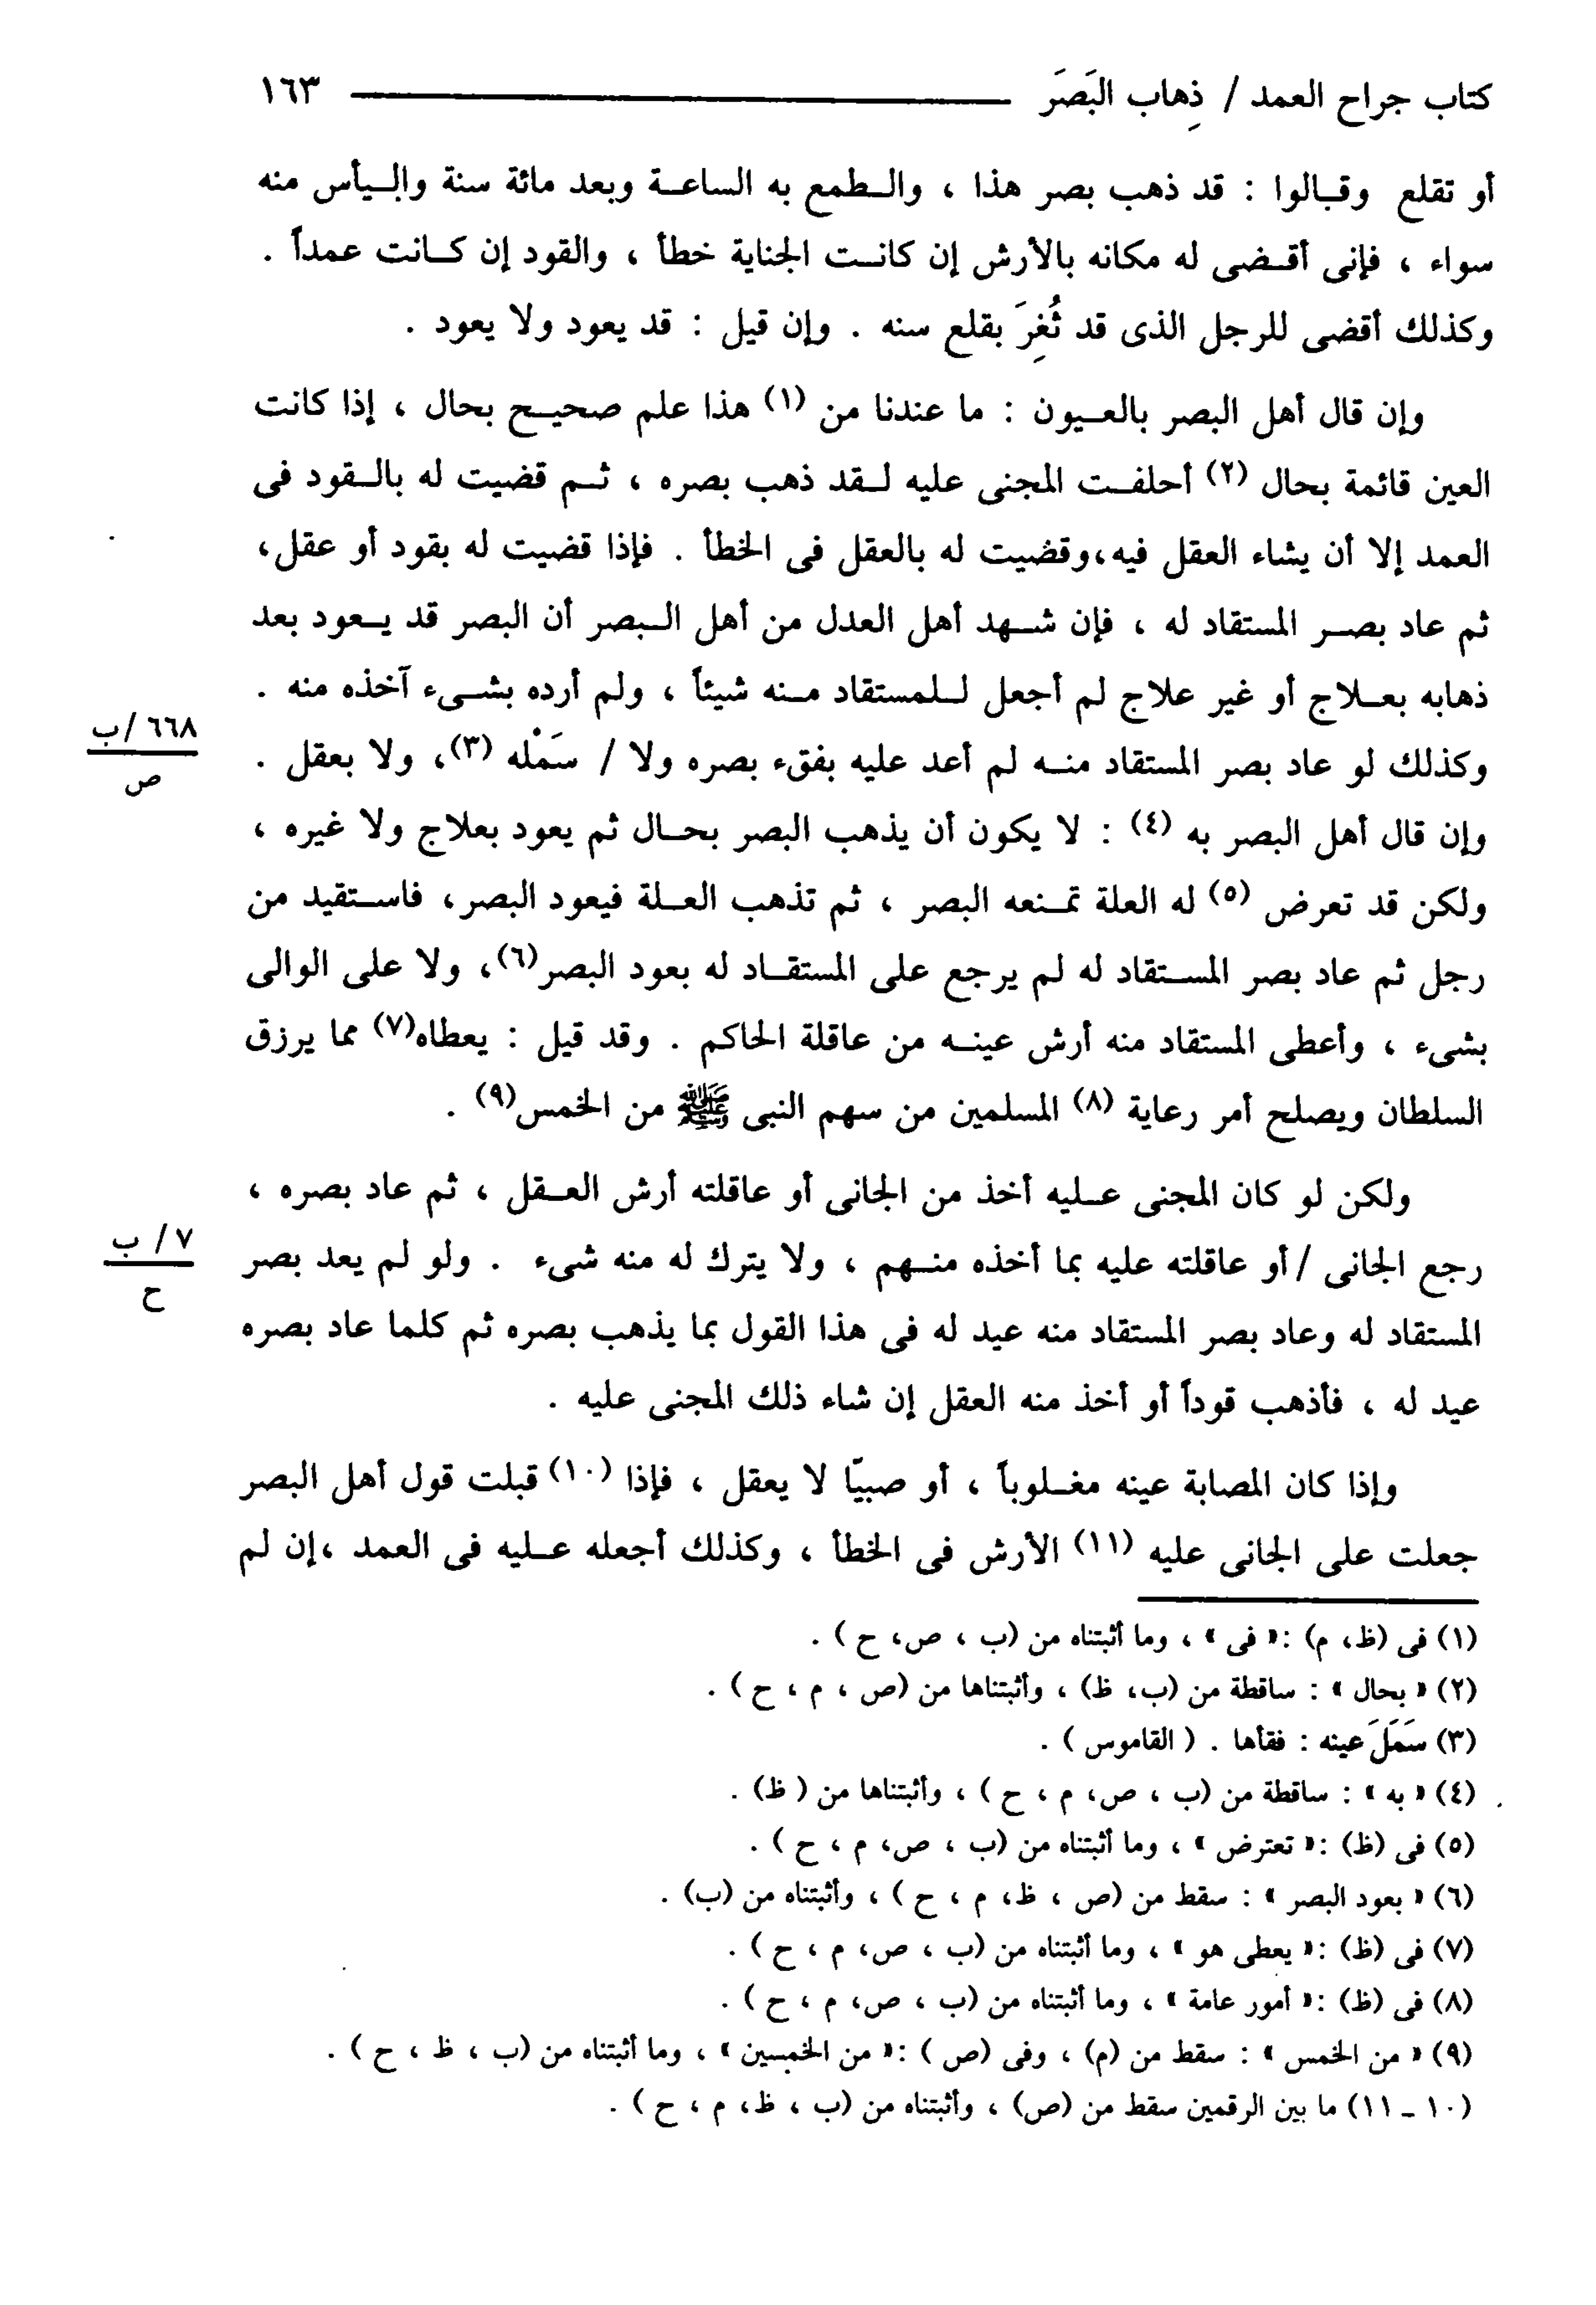 كتاب جراح العمد / ذِهاب البَصَرَ ١٦٣
أو تقلع وقالوا : قد ذهب بصر هذا ، والطمع به الساعة وبعد مائة سنة واليأس منه
سواء ، فإنى أقضى له مكانه بالأرش إن كانت الجناية خطأ ، والقود إن كانت عمداً .
وكذلك أقضى للرجل الذى قد ثُغِرَ بقلع سنه . وإن قيل : قد يعود ولا يعود .
وإن قال أهل البصر بالعيون : ما عندنا من (١) هذا علم صحيح بحال ، إذا كانت
العين قائمة بحال (٢) أحلفت المجنى عليه لقد ذهب بصره ، ثم قضيت له بالقود فى
العمد إلا أن يشاء العقل فيه،وقضيت له بالعقل فى الخطأ . فإذا قضيت له بقود أو عقل،
ثم عاد بصر المستقاد له ، فإن شهد أهل العدل من أهل البصر أن البصر قد يعود بعد
ذهابه بعلاج أو غير علاج لم أجعل للمستقاد منه شيئاً ، ولم أرده بشىء آخذه منه .
٦٦٨ /ب
ص
وكذلك لو عاد بصر المستقاد منه لم أعد عليه بفقء بصره ولا / سَمْله (٣)، ولا بعقل .
وإن قال أهل البصر به (٤) : لا يكون أن يذهب البصر بحال ثم يعود بعلاج ولا غيره ،
ولكن قد تعرض (٥) له العلة تمنعه البصر ، ثم تذهب العلة فيعود البصر، فاستقيد من
رجل ثم عاد بصر المستقاد له لم يرجع على المستقاد له بعود البصر(٦)، ولا على الوالى
بشىء ، وأعطى المستقاد منه أرش عينه من عاقلة الحاكم . وقد قيل : يعطاه(٧) مما يرزق
السلطان ويصلح أمر رعاية (٨) المسلمين من سهم النبى ﷺ من الخمس(٩) .
ولكن لو كان المجنى عليه أخذ من الجانى أو عاقلته أرش العقل ، ثم عاد بصره ،
٧ / ب
ح
رجع الجانى /أو عاقلته عليه بما أخذه منهم ، ولا يترك له منه شىء . ولو لم يعد بصر
المستقاد له وعاد بصر المستقاد منه عيد له فى هذا القول بما يذهب بصره ثم كلما عاد بصره
عيد له ، فأذهب قوداً أو أخذ منه العقل إن شاء ذلك المجنى عليه .
وإذا كان المصابة عينه مغلوباً ، أو صبيّا لا يعقل ، فإذا (١٠) قبلت قول أهل البصر
جعلت على الجانى عليه (١١) الأرش فى الخطأ ، وكذلك أجعله عليه فى العمد ،إن لم
(١) فى (ظ، م) :« فى » ، وما أثبتناه من (ب ، ص، ح ) .
(٢) « بحال » : ساقطة من (ب، ظ) ، وأثبتناها من (ص ، م ، ح ) .
(٣) سَمَلَ عينه : فقأها . ( القاموس ) .
(٤) « به » : ساقطة من (ب ، ص، م ، ح ) ، وأثبتناها من ( ظ) .
(٥) فى (ظ) :« تعترض » ، وما أثبتناه من (ب ، ص، م ، ح ) .
(٦) « بعود البصر » : سقط من (ص ، ظ، م ، ح ) ، وأثبتناه من (ب) .
(٧) فى (ظ) :« يعطى هو » ، وما أثبتناه من (ب ، ص، م ، ح ) .
(٨) فى (ظ) :« أمور عامة » ، وما أثبتناه من (ب ، ص، م ، ح ) .
(٩) « من الخمس » : سقط من (م) ، وفى (ص ) :« من الخمسين » ، وما أثبتناه من (ب ، ظ ، ح ) .
(١٠ ـ ١١) ما بين الرقمين سقط من (ص) ، وأثبتناه من (ب ، ظ، م ، ح ) .